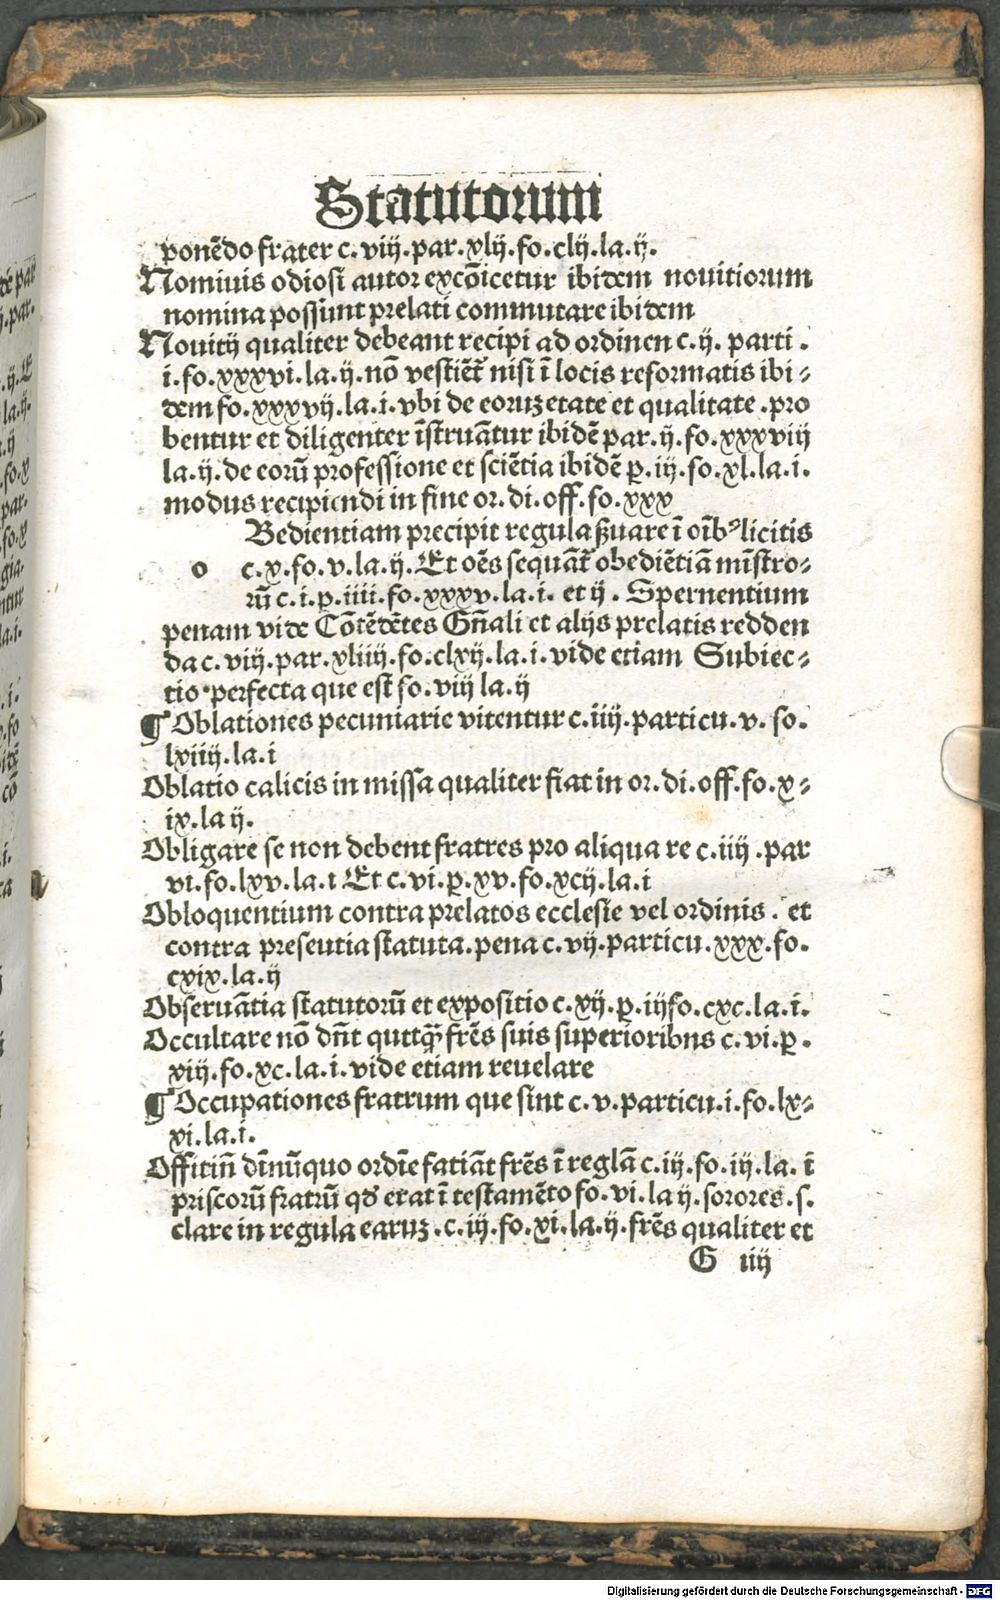 Statutorum
ponẽdo frater c. viij. par. xlij. fo. clij. la. ij.
Nominis odiosi autor excõicetur ibidem nouitiorum
nomina possunt prelati commutare ibidem
Nouitij qualiter debeant recipi ad ordinen c. ij. parti .
i. fo. xxxvi. la. ij. nõ vestiẽt̃ nisi ĩ locis reformatis ibi⸗
dem fo. xxxvij. la. i. vbi de eoruz etate et qualitate . pro
bentur et diligenter ĩstruãtur ibidẽ par. ij. fo. xxxviij
la. ij. de eorũ professione et sciẽtia ibidẽ ꝑ. iij. fo. xl. la. i.
modus recipiendi in fine or. di. off. fo. xxx
Bedientiam precipit regula ẞuare ĩ oĩbꝰ licitis
o c. x. fo. v. la. ij. Et oẽs sequãt̃ obediẽtiã mĩstro⸗
rũ c. i. ꝑ. iiii. fo. xxxv. la. i. et ij . Spernentium
penam vide Cõtẽdẽtes Gñali et alijs prelatis redden
da c. viij. par. xliiij. fo. clxij. la. i. vide etiam Subiec⸗
tio perfecta que est fo. viij la. ij
¶ Oblationes pecuniarie vitentur c. iiij. particu. v. fo.
lxiiij. la. i
Oblatio calicis in missa qualiter fiat in or. di. off. fo. x⸗
ix. la ij.
Obligare se non debent fratres pro aliqua re c. iiij . par
vi. fo. lxv. la. i Et c. vi. ꝑ. xv. fo. xcij. la. i
Obloquentium contra prelatos ecclesie vel ordinis . et
contra preseutia statuta. pena c. vij. particu. xxx. fo.
cxix. la. ij
Obseruãtia statutorũ et expositio c. xij. ꝑ. iijfo. cxc. la. i.
Occultare nõ dñt quttꝙ̃ frẽs suis superioribns c. vi. ꝑ.
xiij. fo. xc. la. i. vide etiam reuelare
¶ Occupationes fratrum que sint c. v. particu. i. fo. lx⸗
vi. la. i.
Offitiũ dĩnũquo ordĩe fatiãt frẽs ĩ reglã c. iij. fo. iij. la. i
priscorũ fratrũ qđ erat ĩ testamẽto fo. vi. la ij. sorores. s.
clare in regula earuz. c. iij. fo. xi. la. ij. frẽs qualiter et
G iiij
Digitalisierung gefördert durch die Deutsche Forschungsgemeinschaft - DFG